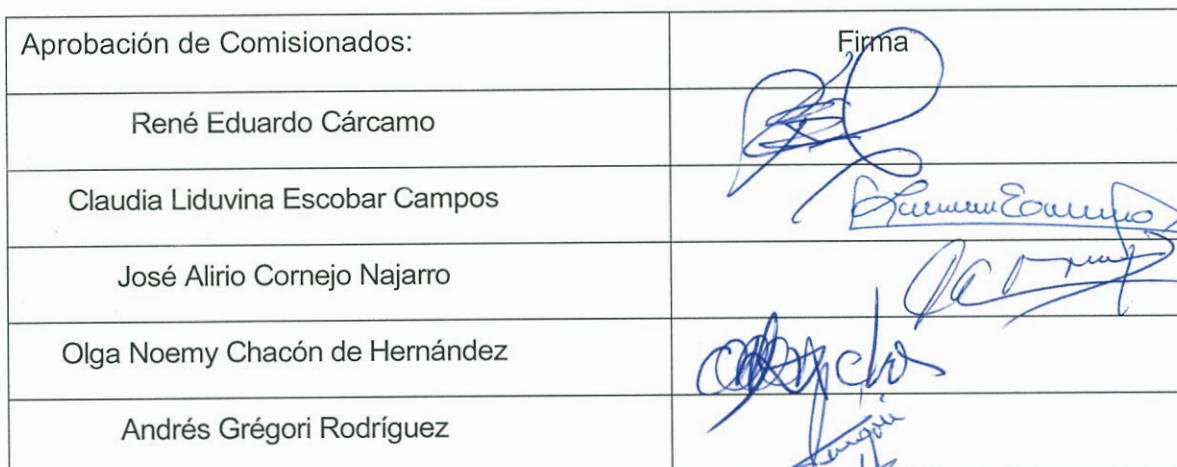 Aprobación de Comisionados: Firma
René Eduardo Cárcamo
Claudia Liduvina Escobar Campos
José Alirio Cornejo Najarro
Olga Noemy Chacón de Hernández
Andrés Grégori Rodríguez